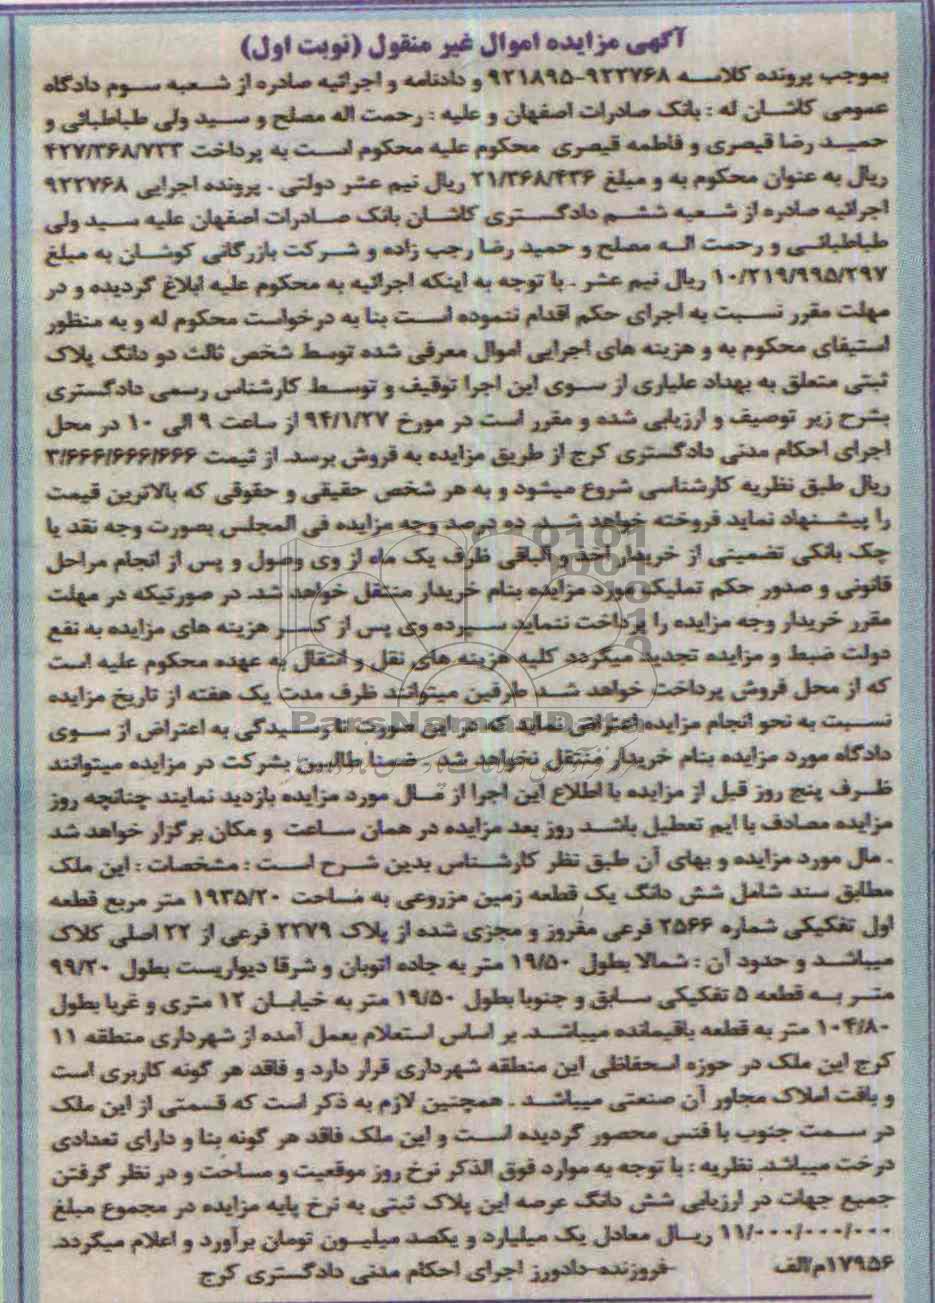 آگهی مزایده اموال غیر منقول (نوبت اول)
بموجب پرونده کلاسه ۹۲۲۷۶۸-۹۲۱۸۹۵ و دادنامه و اجرائیه صادره از شعبه سوم دادگاه
عمومی کاشان له : بانک صادرات اصفهان و علیه : رحمت اله مصلح و سید ولی طباطبائی و
حمید رضا قیصری و فاطمه قیصری محکوم علیه محکوم است به پرداخت ۴۲۷/۳۶۸/۷۲۳
ریال به عنوان محکوم به و مبلغ ۲۱/۳۶۸/۴۳۶ ریال نیم عشر دولتی . پرونده اجرایی ۹۲۲۷۶۸
اجرائیه صادره از شعبه ششم دادگستری کاشان بانک صادرات اصفهان علیه سید ولی
طباطبائی و رحمت اله مصلح و حمید رضا رجب زاده و شرکت بازرگانی کوشان به مبلغ
۱۰/۲۱۹/۹۹۵/۲۹۷ ریال نیم عشر . با توجه به اینکه اجرائیه به محکوم علیه ابلاغ گردیده و در
مهلت مقرر نسبت به اجرای حکم اقدام ننموده است بنا به درخواست محکوم له و به منظور
استیفای محکوم به و هزینه های اجرایی اموال معرفی شده توسط شخص ثالث دو دانگ پلاک
ثبتی متعلق به بهداد علیاری از سوی این اجرا توقیف و توسط کارشناس رسمی دادگستری
بشرح زیر توصیف و ارزیابی شده و مقرر است در مورخ ۹۴/۱/۲۷ از ساعت ۹ الی ۱۰ در محل
اجرای احکام مدنی دادگستری کرج از طریق مزایده به فروش برسد. از قیمت ۳/۶۶۶/۶۶۶/۶۶۶
ریال طبق نظریه کارشناسی شروع میشود و به هر شخص حقیقی و حقوقی که بالاترین قیمت
را پیشنهاد نماید فروخته خواهد شد. ده درصد وجه مزایده فی المجلس بصورت وجه نقد یا
چک بانکی تضمینی از خریدار اخذ و الباقی ظرف یک ماه از وی وصول و پس از انجام مراحل
قانونی و صدور حکم تملیک مورد مزایده بنام خریدار منتقل خواهد شد. در صورتیکه در مهلت
مقرر خریدار وجه مزایده را پرداخت ننماید سپرده وی پس از کسر هزینه های مزایده به نفع
دولت ضبط و مزایده تجدید میگردد. کلیه هزینه های نقل و انتقال به عهده محکوم علیه است
که از محل فروش پرداخت خواهد شد طرفین میتوانند ظرف مدت یک هفته از تاریخ مزایده
نسبت به نحو انجام مزایده اعتراض نماید که در این صورت تا رسیدگی به اعتراض از سوی
دادگاه مورد مزایده بنام خریدار منتقل نخواهد شد . ضمنا طالبین بشرکت در مزایده میتوانند
ظرف پنج روز قبل از مزایده با اطلاع این اجرا از مال مورد مزایده بازدید نمایند چنانچه روز
مزایده مصادف با ایم تعطیل باشد روز بعد مزایده در همان ساعت و مکان برگزار خواهد شد
. مال مورد مزایده و بهای آن طبق نظر کارشناس بدین شرح است : مشخصات : این ملک
مطابق سند شامل شش دانگ یک قطعه زمین مزروعی به مساحت ۱۹۳۵/۲۰ متر مربع قطعه
اول تفکیکی شماره ۲۵۶۶ فرعی مفروز و مجزی شده از پلاک ۲۲۷۹ فرعی از ۲۲ اصلی کلاک
میباشد و حدود آن : شمالا بطول ۱۹/۵۰ متر به جاده اتوبان و شرقا دیواریست بطول ۹۹/۲۰
متر به قطعه ۵ تفکیکی سابق و جنوبا بطول ۱۹/۵۰ متر به خیابان ۱۲ متری و غربا بطول
۱۰۴/۸۰ متر به قطعه باقیمانده میباشد. بر اساس استعلام بعمل آمده از شهرداری منطقه ۱۱
کرج این ملک در حوزه اسحفاظی این منطقه شهرداری قرار دارد و فاقد هر گونه کاربری است
و بافت املاک مجاور آن صنعتی میباشد . همچنین لازم به ذکر است که قسمتی از این ملک
در سمت جنوب با فنس محصور گردیده است و این ملک فاقد هر گونه بنا و دارای تعدادی
درخت میباشد. نظریه : با توجه به موارد فوق الذکر نرخ روز موقعیت و مساحت و در نظر گرفتن
جمیع جهات در ارزیابی شش دانگ عرصه این پلاک ثبتی به نرخ پایه مزایده در مجموع مبلغ
۱۱/۰۰۰/۰۰۰/۰۰۰ ریال معادل یک میلیارد و یکصد میلیون تومان برآورد و اعلام میگردد.
۱۷۹۵۶/م الف فروزنده-دادورز اجرای احکام مدنی دادگستری کرج
ParsNamadData